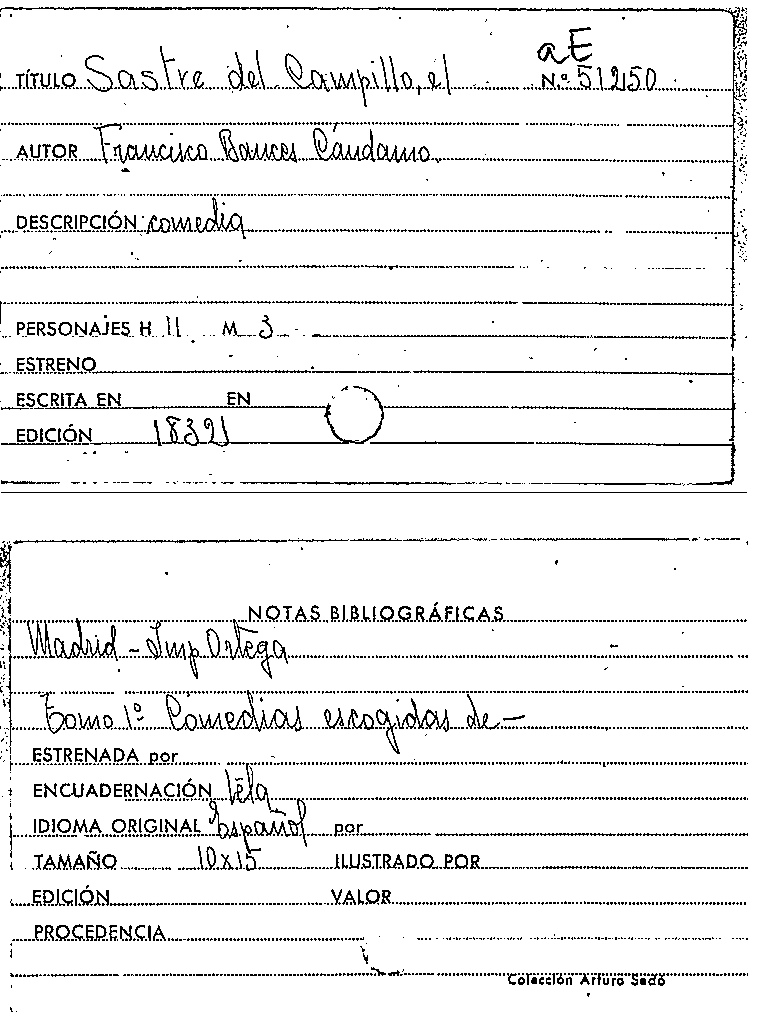 aE
TÍTULO Sastre del Campillo, el N.º 51250
AUTOR Francisco Bances Cándamo.
DESCRIPCIÓN comedia
PERSONAJES H 11 M 3
ESTRENO
ESCRITA EN EN
EDICIÓN 1832
NOTAS BIBLIOGRÁFICAS
Madrid - Imp Ortega
Tomo 1º Comedias escogidas de -
ESTRENADA por
ENCUADERNACIÓN tela
IDIOMA ORIGINAL Español por
TAMAÑO 10x15 ILUSTRADO POR
EDICIÓN VALOR
PROCEDENCIA
Colección Arturo Sedó